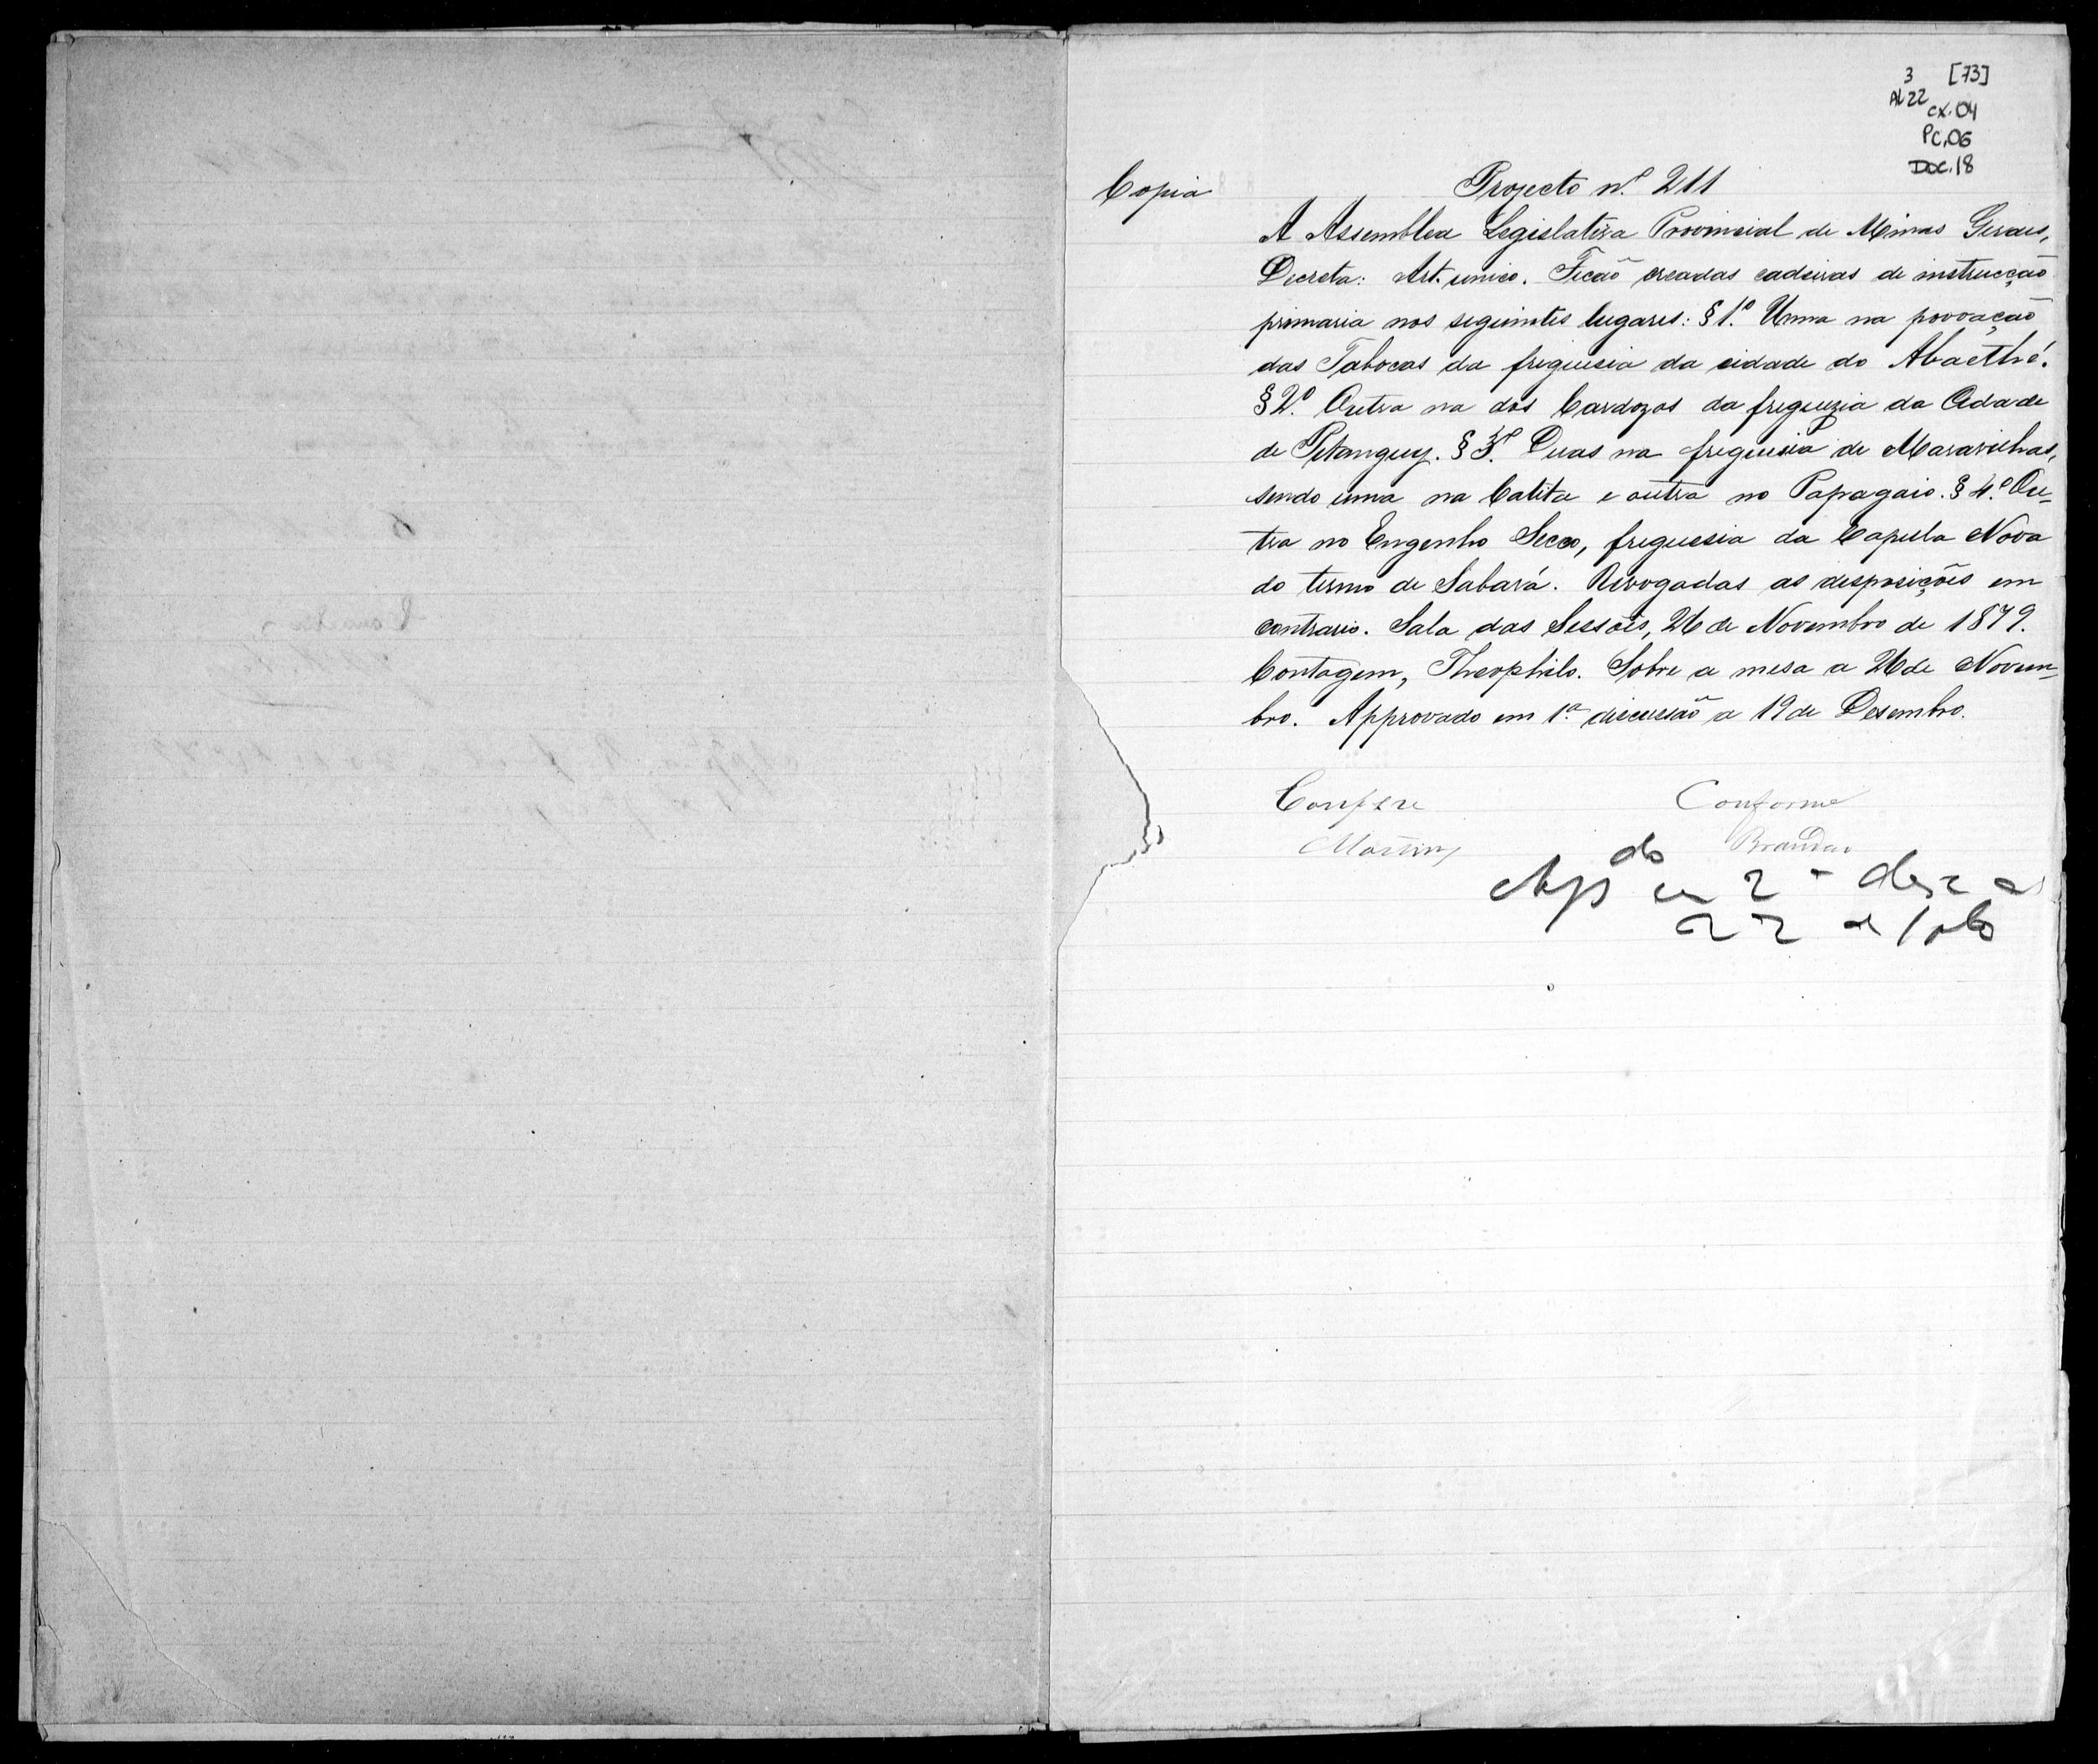 3 [73]
AL 22
cx. 04
PC. 06
DOC. 18
Copia
Projecto nº. 211
A Assemblea Legislativa Provincial de Minas Geraes,
Decreta: Art. unico. Ficaõ creadas cadeiras de instrucçaõ
primaria nos seguintes lugares: § 1.º Uma na povoaçaõ
das Tabocas da freguesia da cidade do Abaethé.
§ 2.º Outra na dos Cardozos da freguezia da Cidade
de Pitanguy. § 3.º Duas na freguesia de Maravilhas,
sendo uma na Catita e outra no Papagaio. § 4.º Ou-
tra no Engenho Secco, freguesia da Capella Nova
do termo de Sabará. Revogadas as desposições em
contrario. Sala das Sessões, 26 de Novembro de 1879.
Contagem, Theophilo. Sobre a mesa a 26 de Novem-
bro. Approvado em 1.ª discussaõ a 19 de Desembro.
Confere
Conforme
Martins
Brandão
App do em 2ª
22